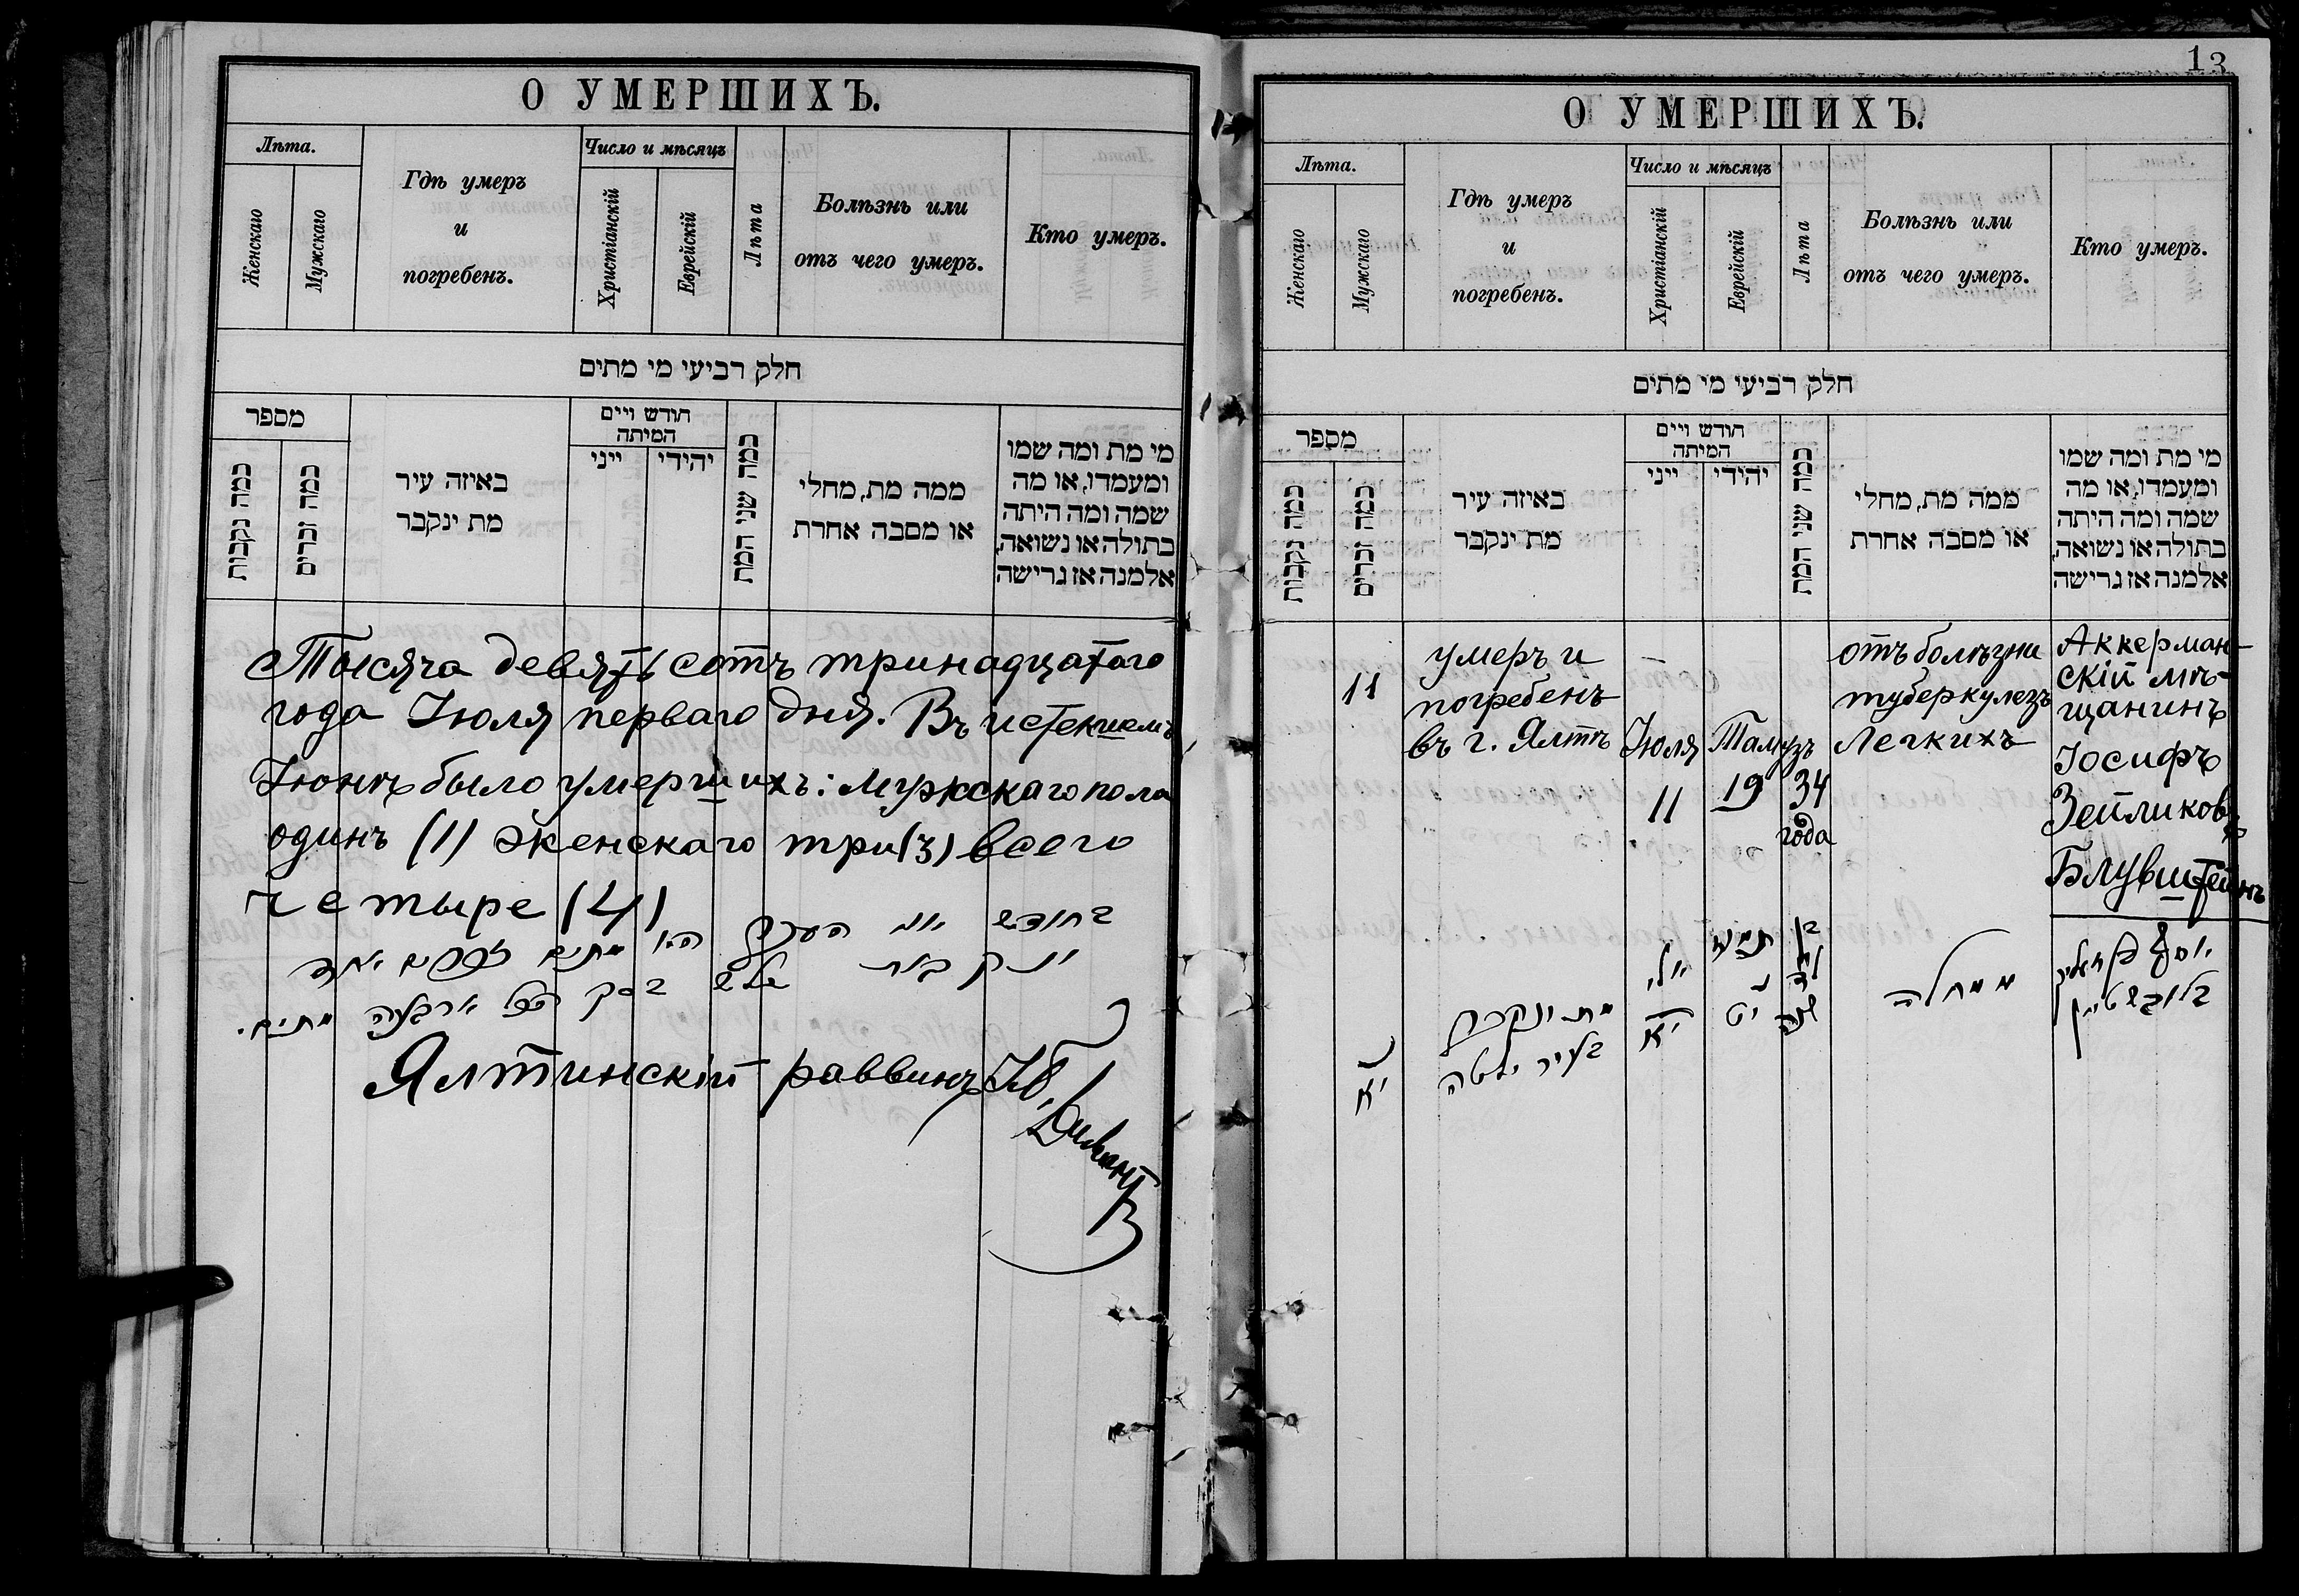 О УМЕРШИХЪ.
Лѣта.
Женскаго
Мужскаго
Гдѣ умеръ
и
погребенъ.
Число и мѣсяцъ
Христіанскій
Еврейскій
Лѣта
Болѣзнь или
отъ чего умеръ.
Кто умеръ.
חלק רביעי מי מתים
מספר
כמה נקבות
כמה זכרים
באיזה עיר
מת ינקבר
חודש ויים
המיתה
ייני
יהידי
כמה שני המת
ממה מת, מחלי
או מסבה אחרת
מי מת ומה שמו
ומעמדו, או מה
שמה ומה היתה
בתולה או נשואה,
אלמנה אז גרישה
Тысяча девятьсотъ тринадцатаго
года Іюля перваго дня. Въ истекшемъ
Іюнѣ было умершихъ: мужскаго пола
одинъ (1) женскаго три (3) всего
четыре (4)
בחודש יוני העבר מתים זכרים אחד
שלש בסך הכל ארבעה מתים.
Ялтинскій раввинъ
13
О УМЕРШИХЪ.
Лѣта.
Женскаго
Мужскаго
Гдѣ умеръ
и
погребенъ.
Число и мѣсяцъ
Христіанскій
Еврейскій
Лѣта
Болѣзнь или
отъ чего умеръ.
Кто умеръ.
חלק רביעי מי מתים
מספר
כמה נקבות
כמה זכרים
באיזה עיר
מת ינקבר
חודש ויים
המיתה
ייני
יהידי
כמה שני המת
ממה מת, מחלי
או מסבה אחרת
מי מת ומה שמו
ומעמדו, או מה
שמה ומה היתה
בתולה או נשואה,
אלמנה אז גרישה
11
умеръ и
погребенъ
въ г. Ялтѣ
Іюля
11
Тамузъ
19
34
года
отъ болѣзни
туберкулезъ
Легкихъ
Аккерман-
скій мѣ-
щанинъ
Іосифъ
Зейликовъ
Блувштейнъ
יא
מת ונקבר
בעיר יאלטה
יולי
יא
תמוז
יט
בן
לד
שנה
ממחלה
יוסף בן
בלובשטיין